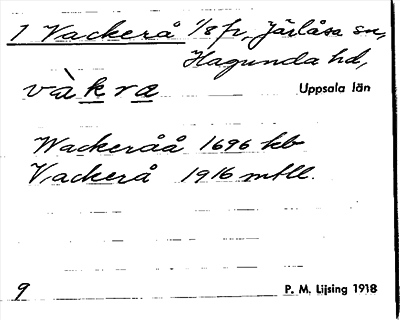 1 Vackerå 1/8 fr, Järlåsa sn,
Hagunda hd,
vàkræ Uppsala län
Wackeråå 1696 kb
Vackerå 1916 mtll.
9 P. M. Lijsing 1918